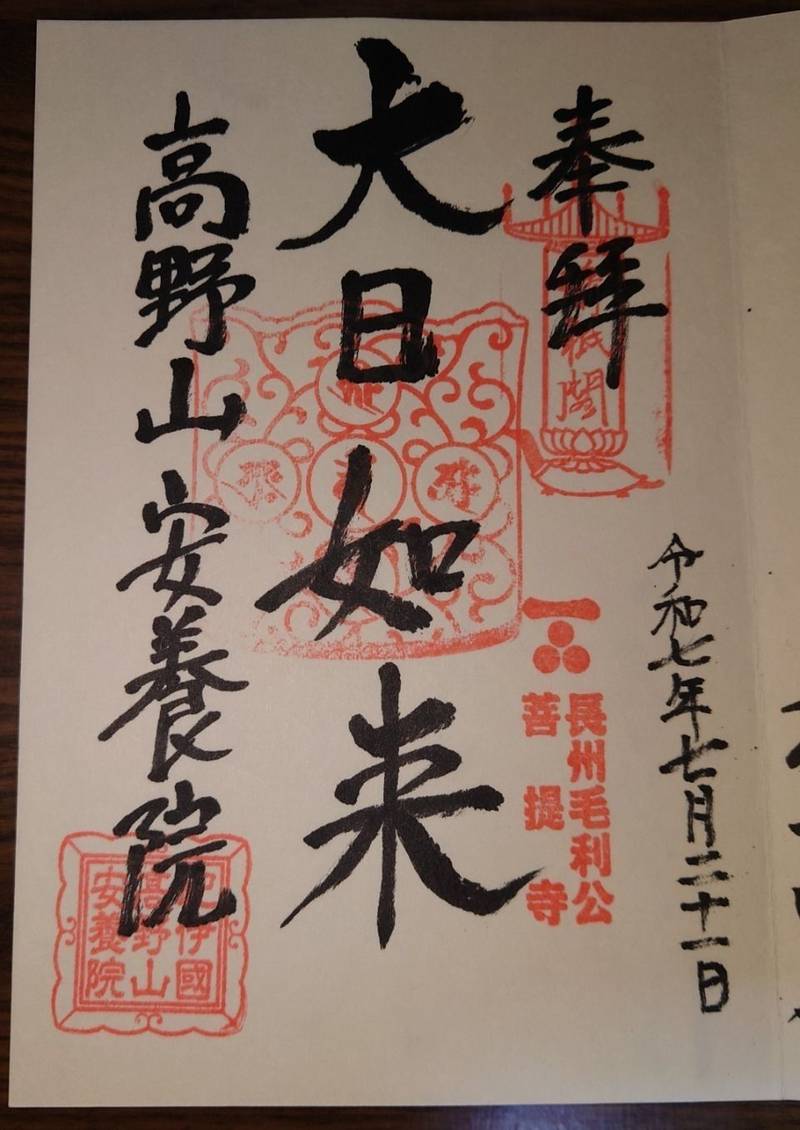 奉拜
令和七年七月二十一日
長州毛利公
菩提寺
大日如来
高野山安養院
紀伊國
高野山
安養院